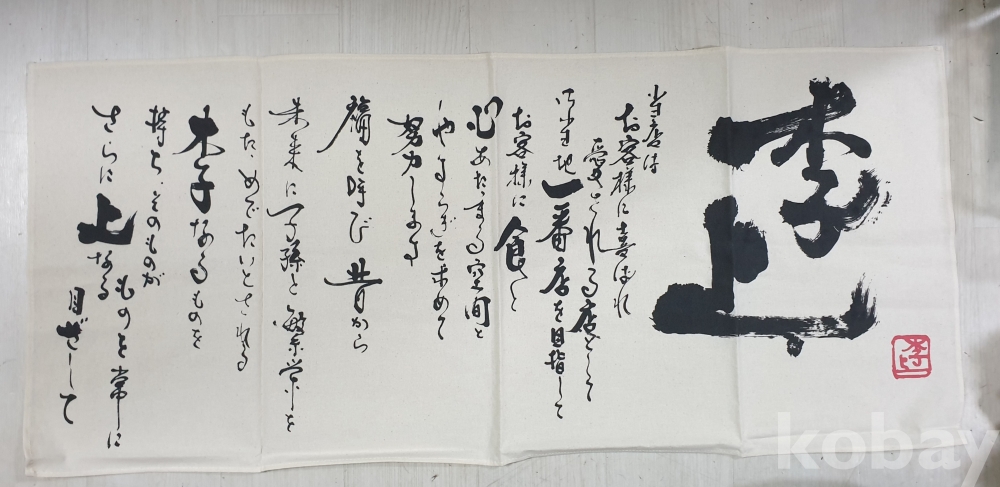 李上
当店は
お客様に喜ばれ
愛される店として
当地一番店を目指して
お客様に食と
心あたたまる空間と
やすらぎを求めて
努力します
を呼び昔から
未来に子孫と繁栄を
めでたいとされる
李なるものを
持ち、そのものが
さらに上なる
ものを常に
目ざして
李上
kobay